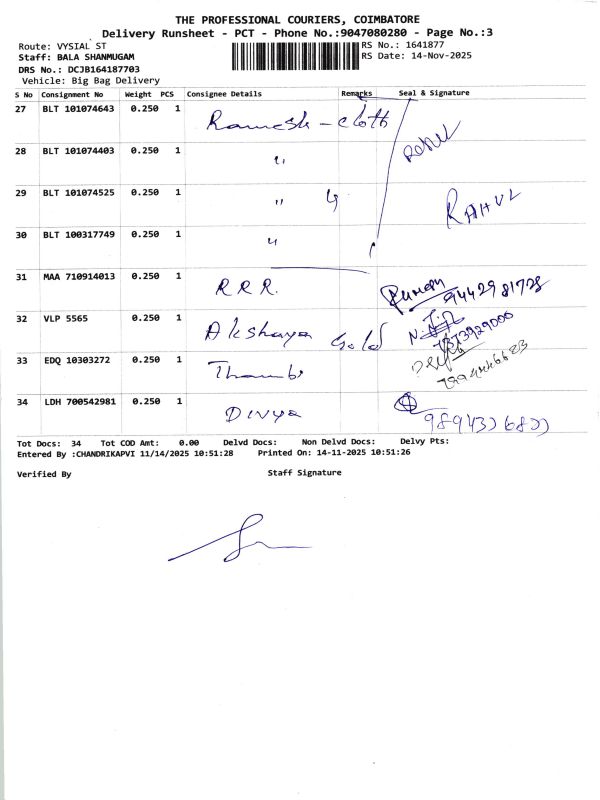 THE PROFESSIONAL COURIERS, COIMBATORE
Delivery Runsheet - PCT - Phone No.:9047080280 - Page No.:3
Route: VYSIAL ST
RS No.: 1641877
Staff: BALA SHANMUGAM
RS Date: 14-Nov-2025
DRS No.: DCJB164187703
Vehicle: Big Bag Delivery
S No Consignment No Weight PCS Consignee Details Remarks Seal & Signature
27 BLT 101074643 0.250 1 Ramesh - cloth
28 BLT 101074403 0.250 1 "
29 BLT 101074525 0.250 1 " RAHUL
30 BLT 100317749 0.250 1 "
31 MAA 710914013 0.250 1 R.R.R. 9442981728
32 VLP 5565 0.250 1 Akshaya Gold
33 EDQ 10303272 0.250 1 Thambi
34 LDH 700542981 0.250 1 Divya
Tot Docs: 34 Tot COD Amt: 0.00 Delvd Docs: Non Delvd Docs: Delvy Pts:
Entered By :CHANDRIKAPVI 11/14/2025 10:51:28 Printed On: 14-11-2025 10:51:26
Verified By Staff Signature